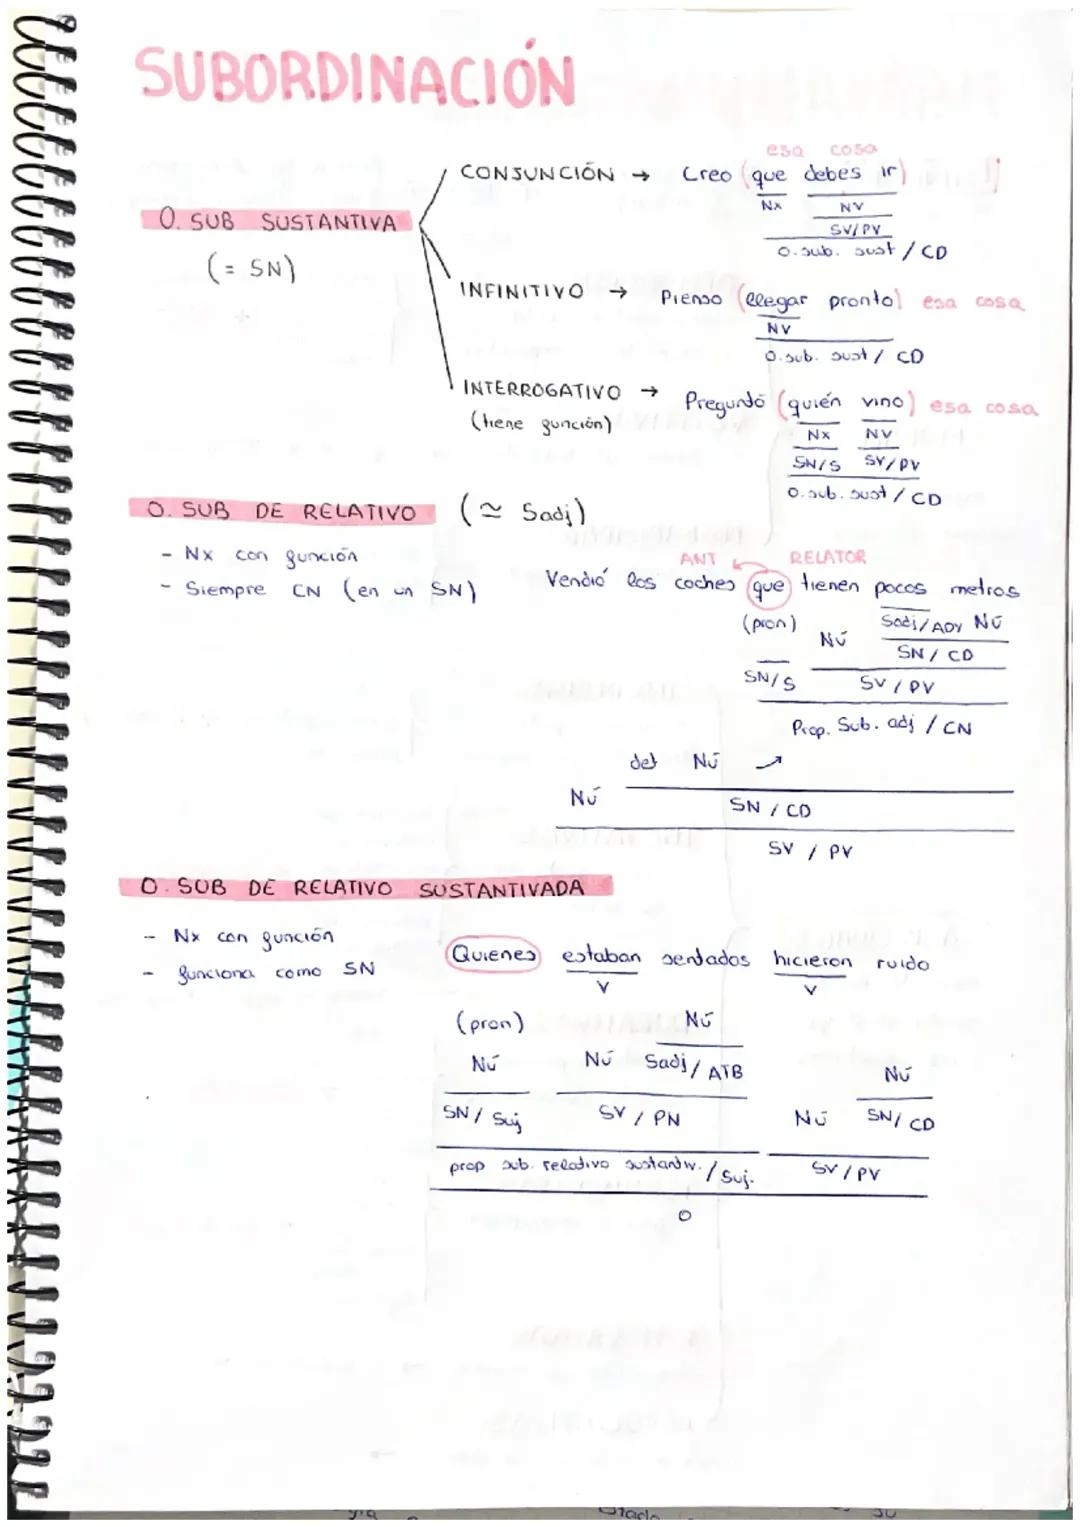 SUBORDINACIÓN
esa cosa
CONJUNCIÓN → Creo (que debes ir)
Nx NV
O. SUB SUSTANTIVA
SV/PV
(= SN)
O.sub. sust / CD
INFINITIVO → Pienso (llegar pronto) esa cosa
NV
O.sub. sust / CD
INTERROGATIVO → Preguntó (quién vino) esa cosa
(tiene función)
Nx NV
SN/S SV/PV
O.sub. sust / CD
O. SUB DE RELATIVO (≃ Sadj)
- Nx con función
ANT RELATOR
- Siempre CN (en un SN)
Vendió los coches que tienen pocos metros
(pron) Nú Sadj/ADY Nú
SN / CD
SN/S SV / PV
Prop. Sub. adj / CN
det Nú
Nú SN / CD
SV / PV
O. SUB DE RELATIVO SUSTANTIVADA
- Nx con función
- funciona como SN
Quienes estaban sentados hicieron ruido
V V
(pron) Nú
Nú Nú Sadj / ATB Nú
SN / Suj SV / PN Nú SN / CD
prop sub. relativo sustantiv. / Suj. SV / PV
O